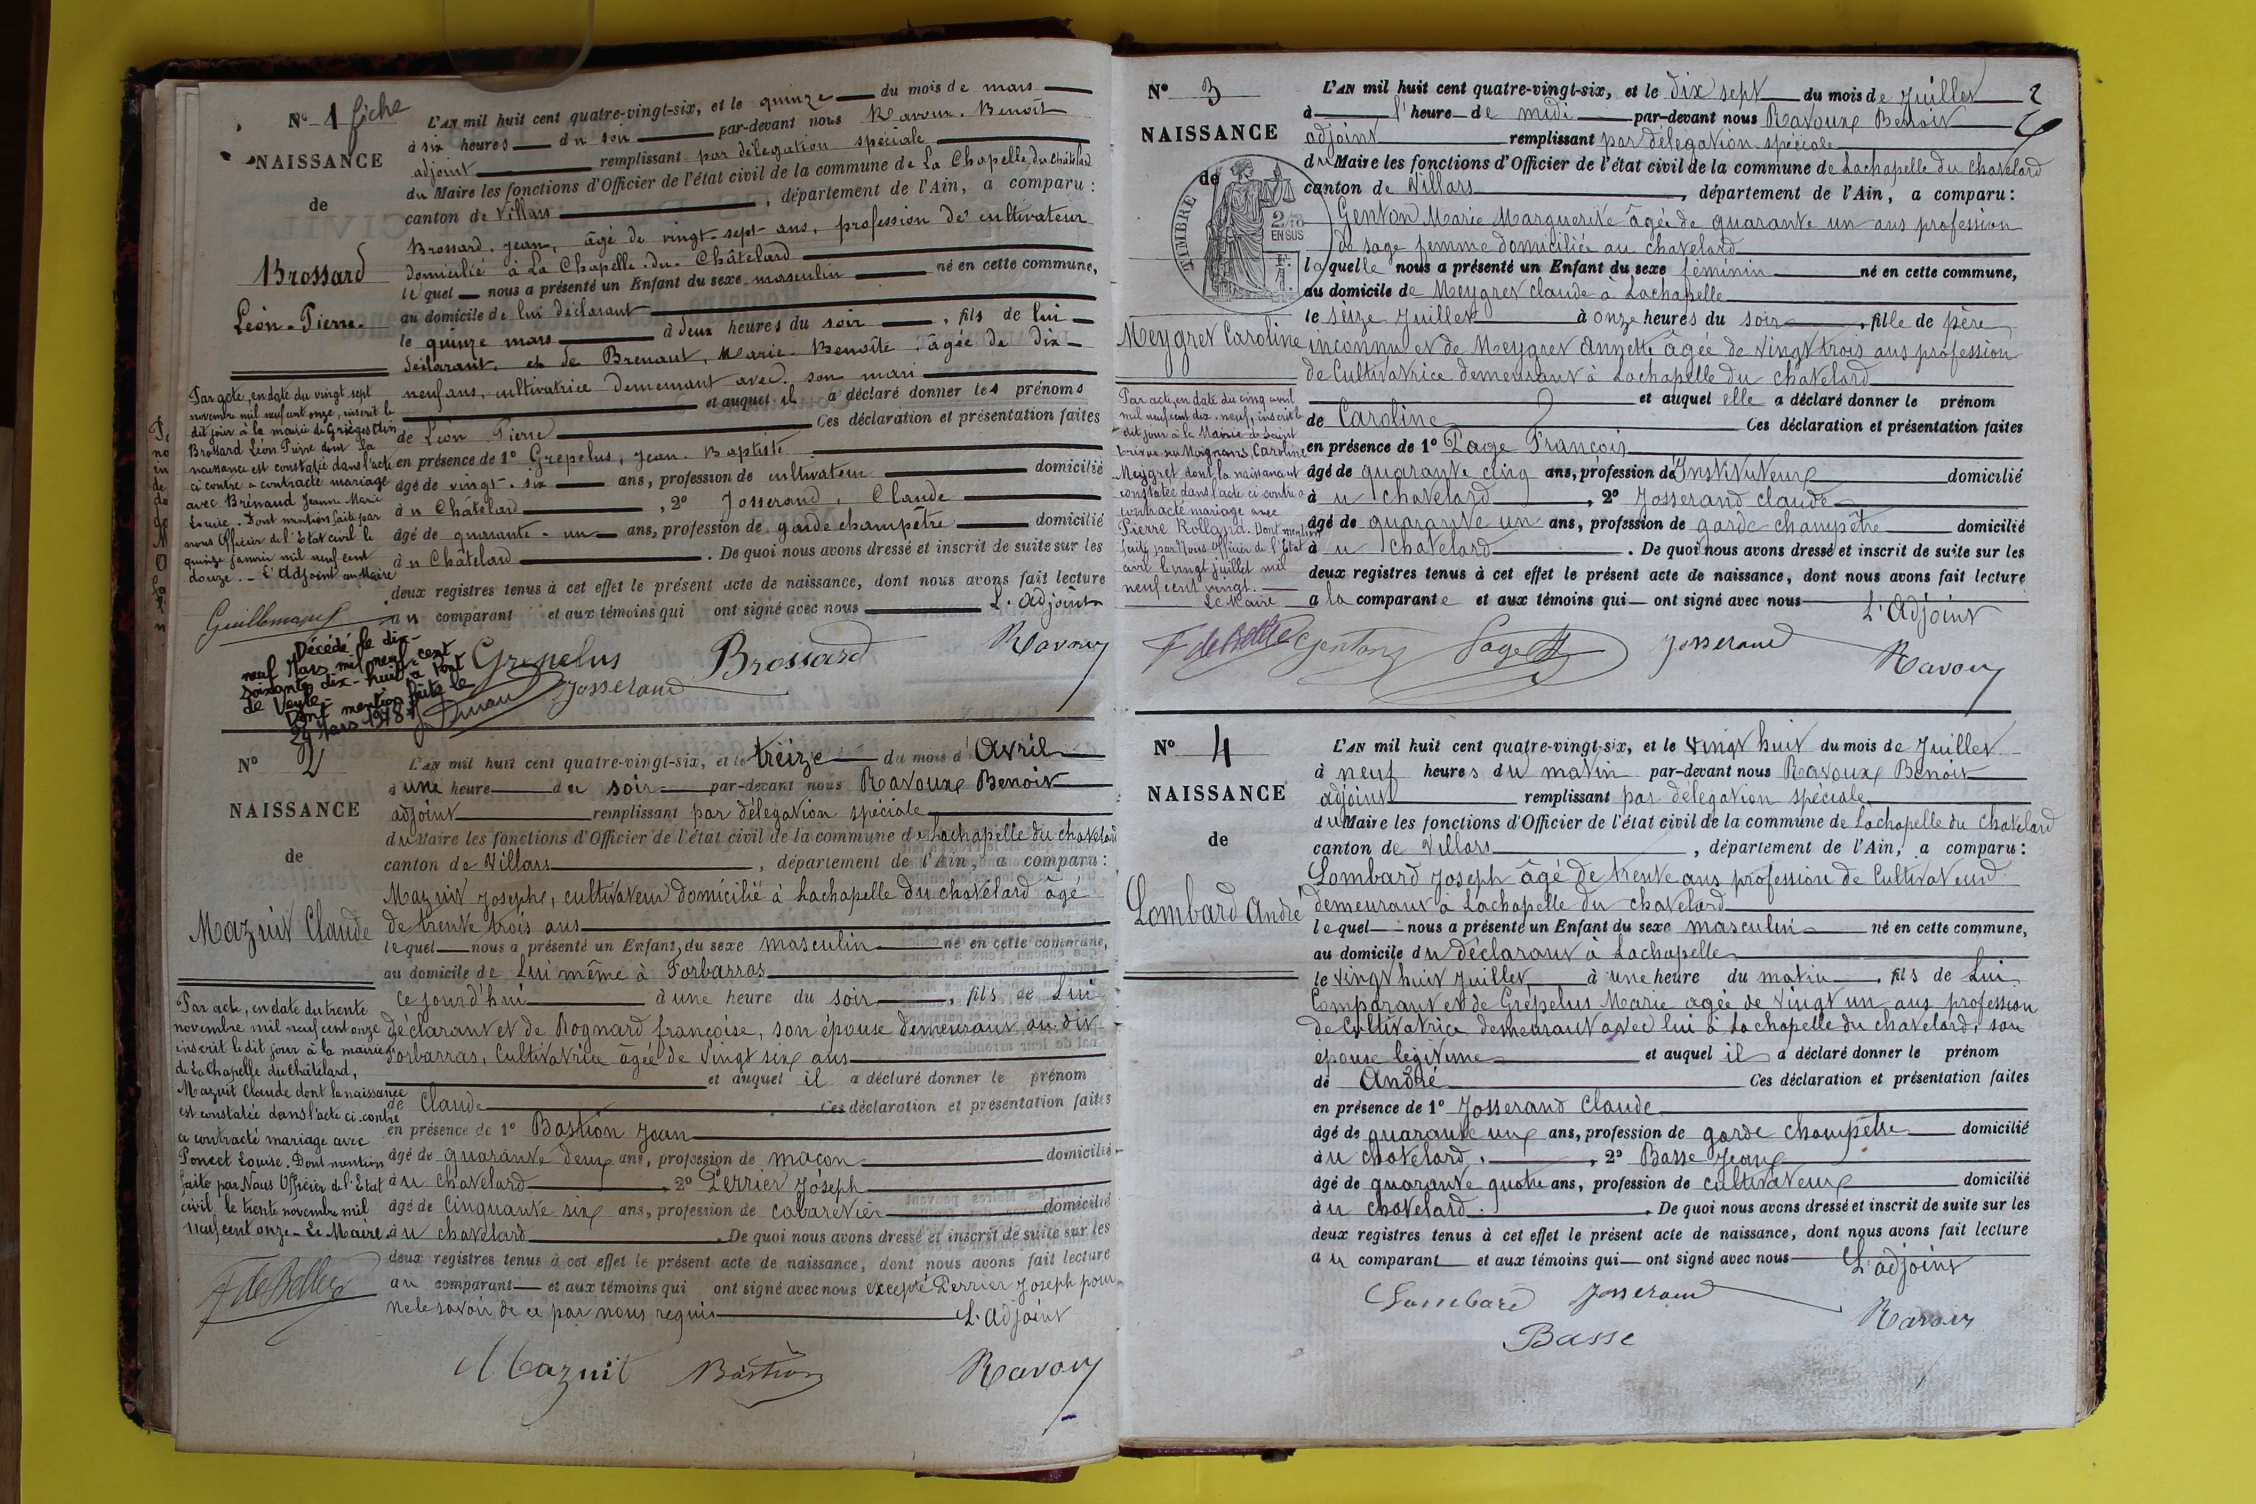 Nº 1 fiche
NAISSANCE
de
Brossard
Léon-Pierre
L'AN mil huit cent quatre-vingt-six, et le quinze du mois de mars
à six heures du soir par-devant nous Ravoux Benoît
adjoint remplissant par délégation spéciale
du Maire les fonctions d'Officier de l'état civil de la commune de La Chapelle du Châtelard
canton de Villars, département de l'Ain, a comparu :
Brossard Jean, âgé de vingt-sept ans, profession de cultivateur
domicilié à La Chapelle-du-Châtelard
lequel nous a présenté un Enfant du sexe masculin né en cette commune,
au domicile de lui déclarant
le quinze mars à deux heures du soir, fils de lui
déclarant, et de Brenaut, Marie-Benoîte, âgée de dix-
neuf ans, cultivatrice demeurant avec son mari
et auquel il a déclaré donner les prénoms
de Léon Pierre Ces déclaration et présentation faites
en présence de 1º Grepelus, Jean-Baptiste
âgé de vingt-six ans, profession de cultivateur domicilié
à u Châtelard, 2º Josserand, Claude
âgé de quarante-un ans, profession de garde champêtre domicilié
à u Châtelard. De quoi nous avons dressé et inscrit de suite sur les
deux registres tenus à cet effet le présent acte de naissance, dont nous avons fait lecture
au comparant et aux témoins qui ont signé avec nous L'Adjoint
Grepelus Brossard Ravoux
Josserand
Par acte, en date du vingt sept
novembre mil neuf cent onze, inscrit le
dit jour à la mairie de Grièges (Ain)
Brossard Léon Pierre dont la
naissance est constatée dans l'acte
ci contre a contracté mariage
avec Brénaud Jeanne Marie
Louise. Dont mention faite par
nous Officier de l'Etat civil le
quinze janvier mil neuf cent
douze. - L'Adjoint au Maire
Décédé le dix-
neuf Mars mil neuf-cent
soixante dix-huit à Pont
de Veyle-
Dont mention faite le
29 Mars 1978
Nº 2
NAISSANCE
de
Mazuit Claude
L'AN mil huit cent quatre-vingt-six, et le treize du mois d'Avril
à une heure du soir par-devant nous Ravoux Benoit
adjoint remplissant par délégation spéciale
du Maire les fonctions d'Officier de l'état civil de la commune de Lachapelle du chatelard
canton de Villars, département de l'Ain, a comparu :
Mazuit Joseph, cultivateur domicilié à Lachapelle du chatelard âgé
de trente trois ans
lequel nous a présenté un Enfant du sexe masculin né en cette commune,
au domicile de Lui même à Forbarras
ce jourd'hui à une heure du soir, fils de Lui
déclarant et de Rognard françoise, son épouse demeurant au dit
Forbarras, Cultivatrice âgée de vingt six ans
et auquel il a déclaré donner le prénom
de Claude Ces déclaration et présentation faites
en présence de 1º Bastion Jean
âgé de quarante deux ans, profession de maçon domicilié
à u chatelard 2º Perrier Joseph
âgé de Cinquante six ans, profession de cabaretier domicilié
à u chatelard. De quoi nous avons dressé et inscrit de suite sur les
deux registres tenus à cet effet le présent acte de naissance, dont nous avons fait lecture
au comparant et aux témoins qui ont signé avec nous excepté Perrier Joseph pour
ne le savoir de ce par nous requis L'Adjoint
Mazuit Bastion Ravoux
Par acte, en date du trente
novembre mil neuf cent onze
inscrit le dit jour à la mairie
de La Chapelle du Châtelard,
Mazuit Claude dont la naissance
est constatée dans l'acte ci-contre
a contracté mariage avec
Poncet Louise. Dont mention
faite par Nous Officier de l'Etat
civil le trente novembre mil
neuf cent onze - Le Maire
Nº 3
NAISSANCE
de
TIMBRE
2/10
EN SUS
Meygret Caroline
2
L'AN mil huit cent quatre-vingt-six, et le dix sept du mois de Juillet
à l'heure de midi par-devant nous Ravoux Benoit
adjoint remplissant par délégation spéciale
du Maire les fonctions d'Officier de l'état civil de la commune de Lachapelle du chatelard
canton de Villars, département de l'Ain, a comparu :
Genton Marie Marguerite âgée de quarante un ans profession
de sage femme domiciliée au chatelard
laquelle nous a présenté un Enfant du sexe féminin né en cette commune,
au domicile de Meygret Claude à Lachapelle
le seize Juillet à onze heures du soir, fille de père
inconnu et de Meygret Annette âgée de vingt trois ans profession
de Cultivatrice demeurant à Lachapelle du chatelard
et auquel elle a déclaré donner le prénom
de Caroline Ces déclaration et présentation faites
en présence de 1º Page François
âgé de quarante cinq ans, profession d'Instituteur domicilié
à u chatelard, 2º Josserand Claude
âgé de quarante un ans, profession de garde-champêtre domicilié
à u chatelard. De quoi nous avons dressé et inscrit de suite sur les
deux registres tenus à cet effet le présent acte de naissance, dont nous avons fait lecture
a la comparante et aux témoins qui ont signé avec nous L'Adjoint
Genton Page Josserand Ravoux
Par acte, en date du cinq avril
mil neuf cent dix-neuf, inscrit le
dit jour à la Mairie de Saint
Trivier sur Moignans, Caroline
Meygret dont la naissance est
constatée dans l'acte ci contre a
contracté mariage avec
Pierre Rolland. Dont mention
faite par Nous Officier de l'Etat
civil le vingt juillet mil
neuf cent vingt.
Le Maire
Nº 4
NAISSANCE
de
Lombard André
L'AN mil huit cent quatre-vingt-six, et le vingt huit du mois de Juillet
à neuf heures du matin par-devant nous Ravoux Benoit
adjoint remplissant par délégation spéciale
du Maire les fonctions d'Officier de l'état civil de la commune de Lachapelle du chatelard
canton de Villars, département de l'Ain, a comparu :
Lombard Joseph âgé de trente ans profession de Cultivateur
demeurant à Lachapelle du chatelard
lequel nous a présenté un Enfant du sexe masculin né en cette commune,
au domicile du déclarant à Lachapelle
le vingt huit Juillet à une heure du matin, fils de Lui
Comparant et de Grépelus Marie agée de vingt un ans profession
de Cultivatrice demeurant avec lui à Lachapelle du chatelard, son
épouse légitime et auquel il a déclaré donner le prénom
de André Ces déclaration et présentation faites
en présence de 1º Josserand Claude
âgé de quarante un ans, profession de garde champêtre domicilié
à u chatelard, 2º Basse Jean
âgé de quarante quatre ans, profession de cultivateur domicilié
à u chatelard. De quoi nous avons dressé et inscrit de suite sur les
deux registres tenus à cet effet le présent acte de naissance, dont nous avons fait lecture
a u comparant et aux témoins qui ont signé avec nous L'adjoint
Lombard Josserand Ravoux
Basse